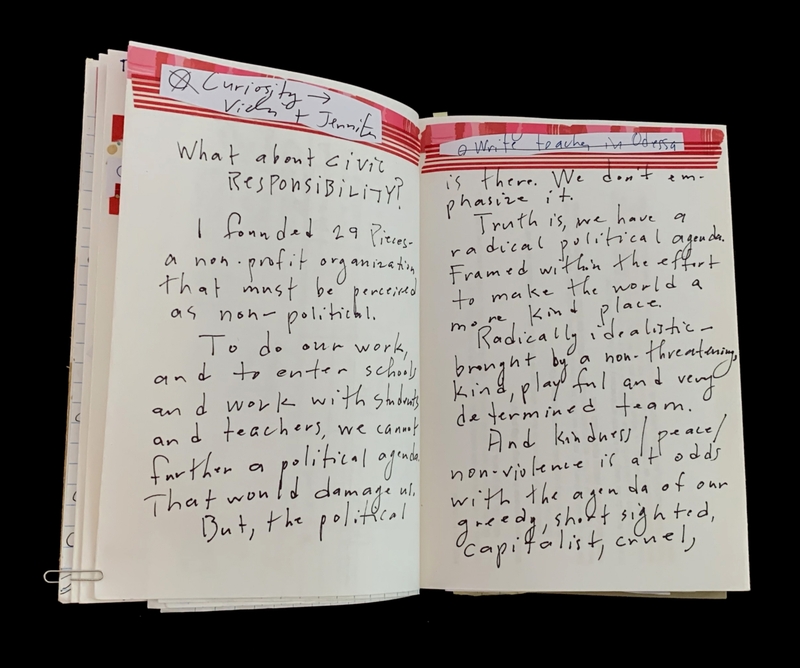 Curiosity →
Vicki + Jennifer
What about civic
RESPONSIBILITY?
I founded 29 Pieces-
a non-profit organization
that must be perceived
as non-political.
To do our work,
and to enter schools
and work with students
and teachers, we cannot
further a political agenda.
That would damage us.
But, the political
Write teacher in Odessa
is there. We don't em-
phasize it.
Truth is, we have a
radical political agenda.
Framed within the effort
to make the world a
more kind place.
Radically idealistic-
brought by a non-threatening,
kind, playful and very
determined team.
And kindness/peace/
non-violence is at odds
with the agenda of our
greedy, short sighted,
capitalist, cruel,